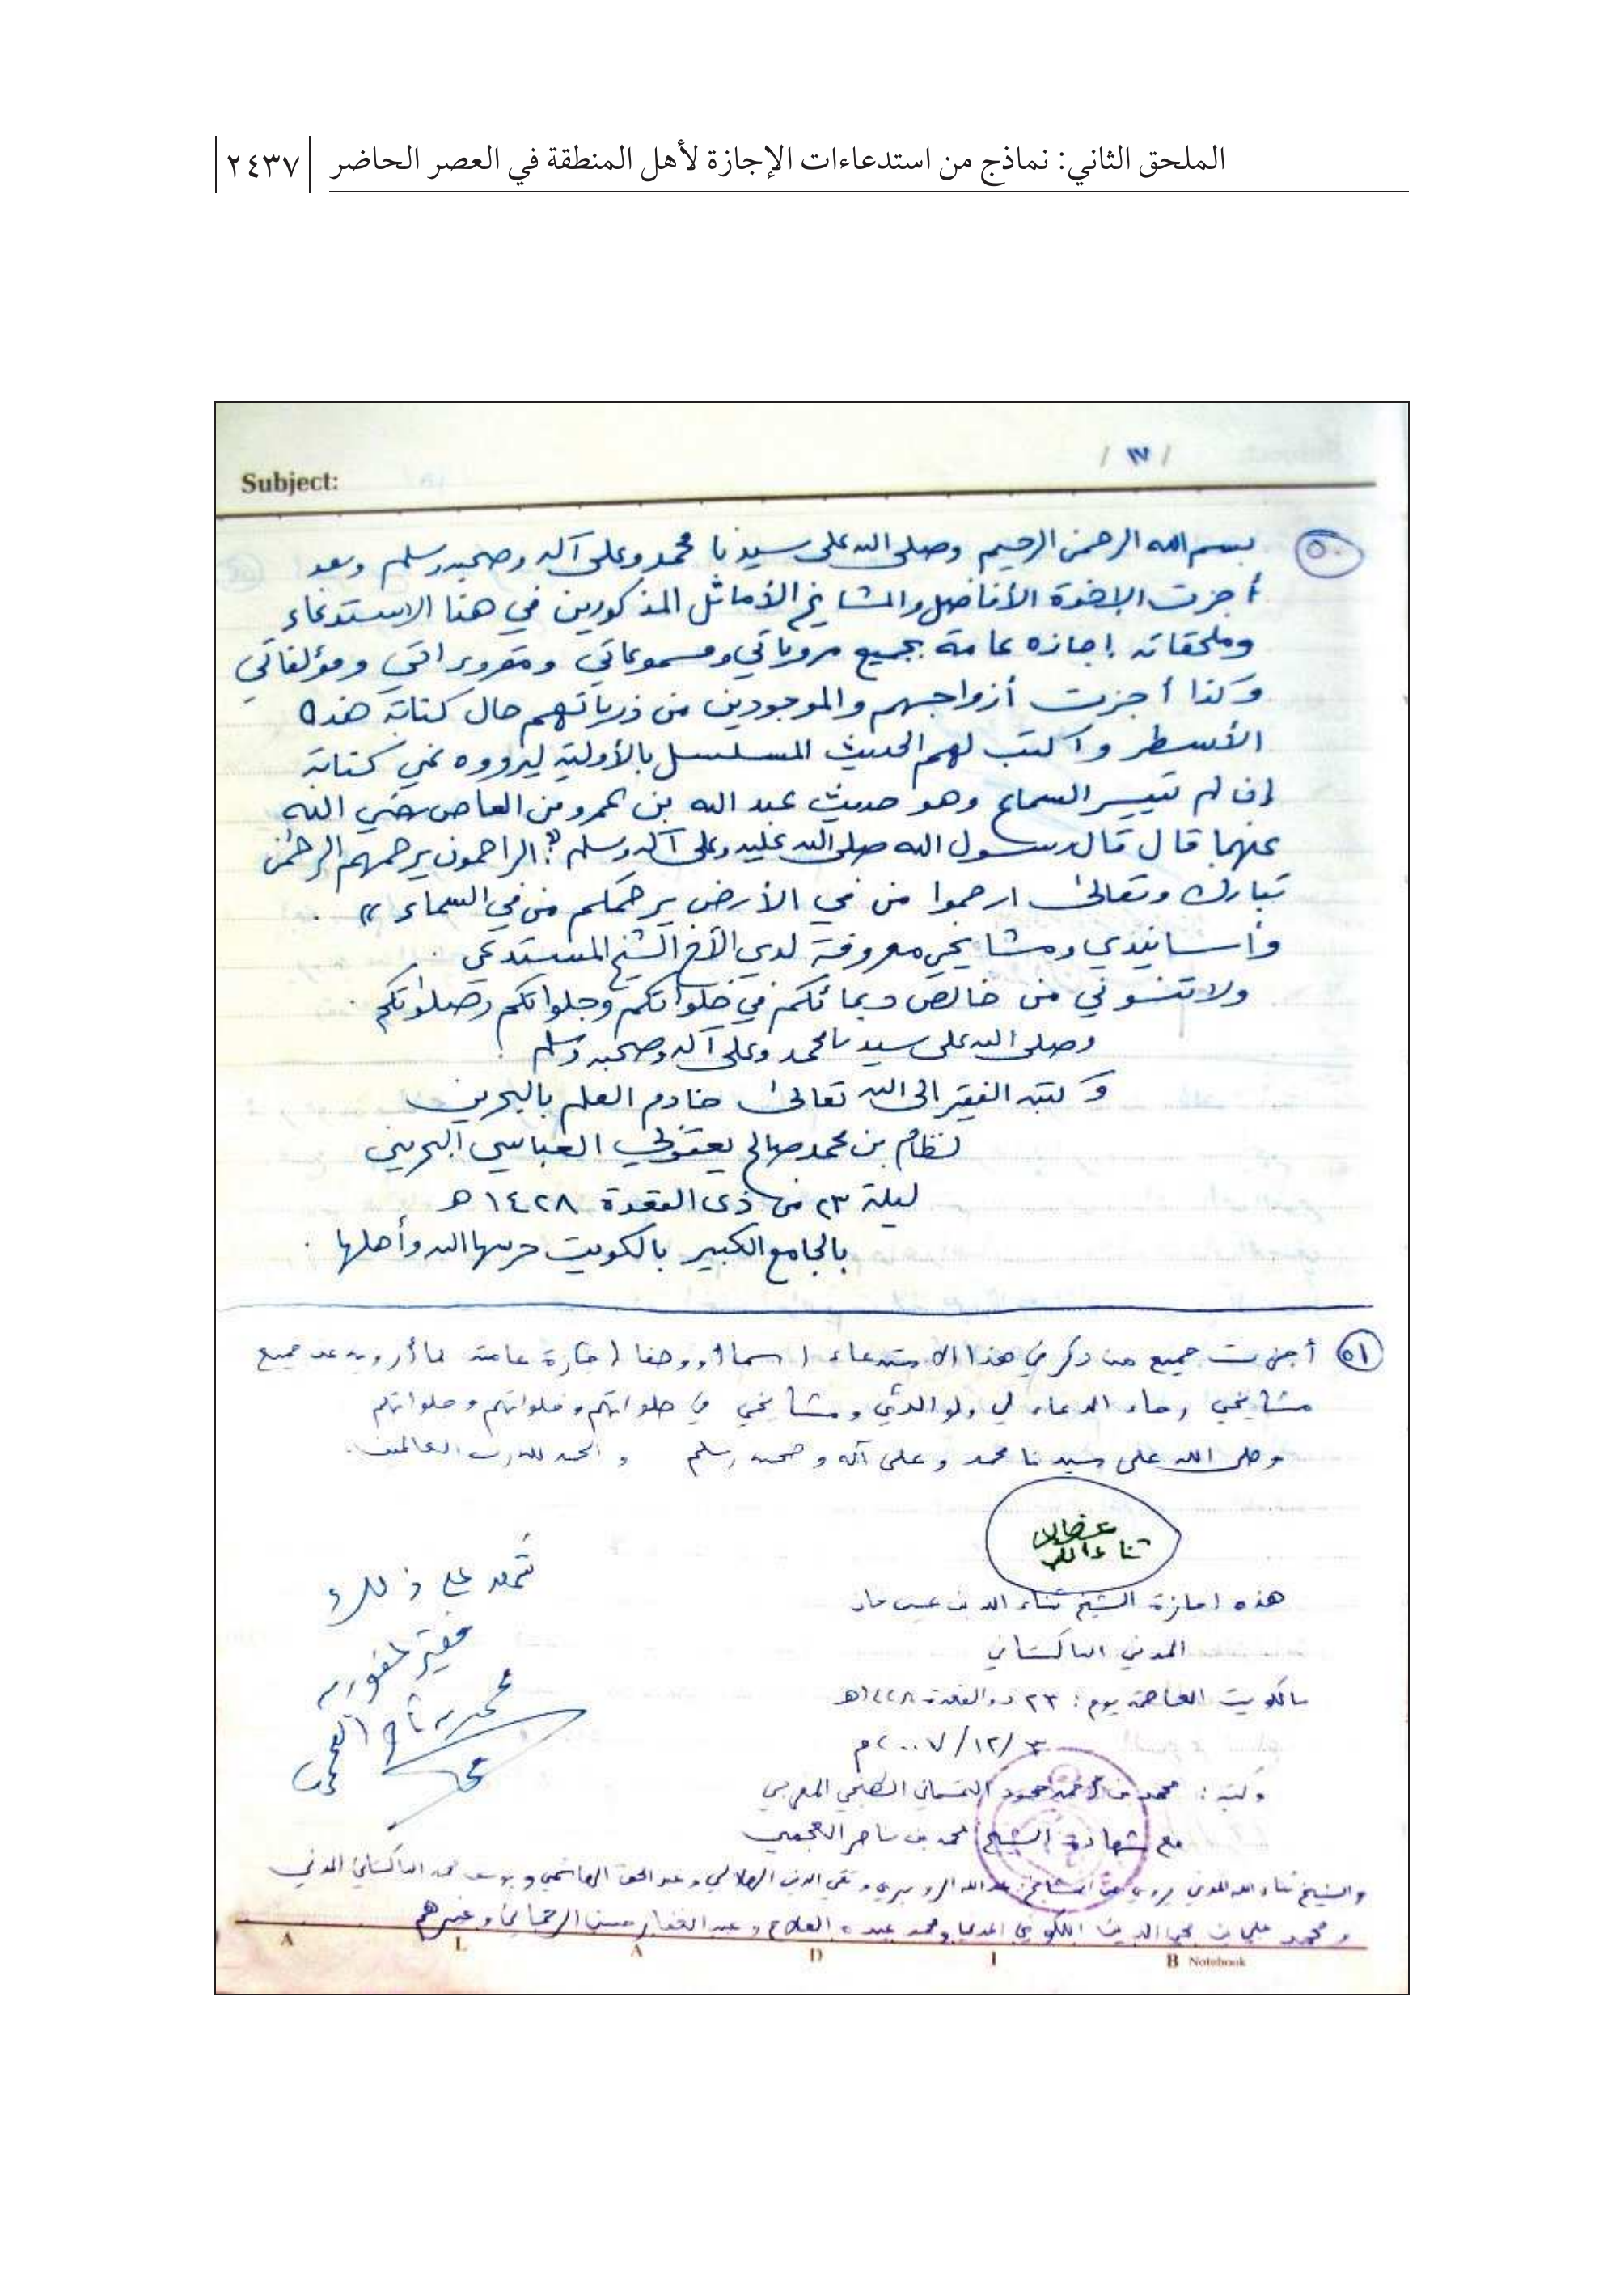 الملحق الثاني: نماذج من استدعاءات الإجازة لأهل المنطقة في العصر الحاضر ٢٤٣٧
/ ١٧ /
Subject:
٥٠ بسم الله الرحمن الرحيم وصلى الله على سيدنا محمد وعلى آله وصحبه وسلم وبعد
أجزت الإخوة الأفاضل والمشايخ الأماثل المذكورين في هذا الاستدعاء
وملحقاته إجازه عامة بجميع مروياتي ومسموعاتي ومقروءاتي ومؤلفاتي
وكذا أجزت أزواجهم والموجودين من ذرياتهم حال كتابة هذه
الأسطر وأكتب لهم الحديث المسلسل بالأولية ليرووه عني كتابة
إن لم تيسر السماع وهو حديث عبد الله بن عمرو بن العاص رضي الله
عنهما قال قال رسول الله صلى الله عليه وعلى آله وسلم : الراحمون يرحمهم الرحمن
تبارك وتعالى ارحموا من في الأرض يرحمكم من في السماء » .
وأسانيدي ومشايخي معروفة لدى الأخ الشيخ المستدعي .
ولا تنسوني من خالص دعائكم في خلواتكم وجلواتكم وصلواتكم .
وصلى الله على سيدنا محمد وعلى آله وصحبه وسلم
وكتبه الفقير إلى الله تعالى خادم العلم بالبحرين
نظام بن محمد صالح يعقوبي العباسي البحريني
ليلة ٢٣ من ذي القعدة ١٤٢٨ هـ
بالجامع الكبير بالكويت حرسها الله وأهلها .
٥١ أجزت جميع من ذكر في هذا الاستدعاء اسما أو وصفا إجازة عامة بما أرويه عن جميع
مشايخي رجاء الدعاء لي ولوالدي ومشايخي في خلواتهم وجلواتهم وصلواتهم
وصلى الله على سيدنا محمد وعلى آله وصحبه وسلم والحمد لله رب العالمين.
ثناء الله
هذه إجازة الشيخ ثناء الله بن عيسى خان
المدني الباكستاني
بالكويت العاصمة يوم: ٢٣ ذو القعدة ١٤٢٨هـ
٣/١٢/٢٠٠٧م
وكتبه: محمد بن أحمد محمود المغربي
مع شهادة الشيخ محمد بن ناصر العجمي
شهد على ذلك
فقير عفو ربه
محمد بن ناصر العجمي
والشيخ ثناء الله المدني يروي عن المشايخ: عبد الله الروبري وتقي الدين الهلالي وعبد الحق الهاشمي و محمد الباكستاني المدني
ومحمد علي بن محيي الدين اللكوي المدني ومحمد عبده الفلاح وعبد الغفار حسن الرحماني وغيرهم
A L A D I B Notebook